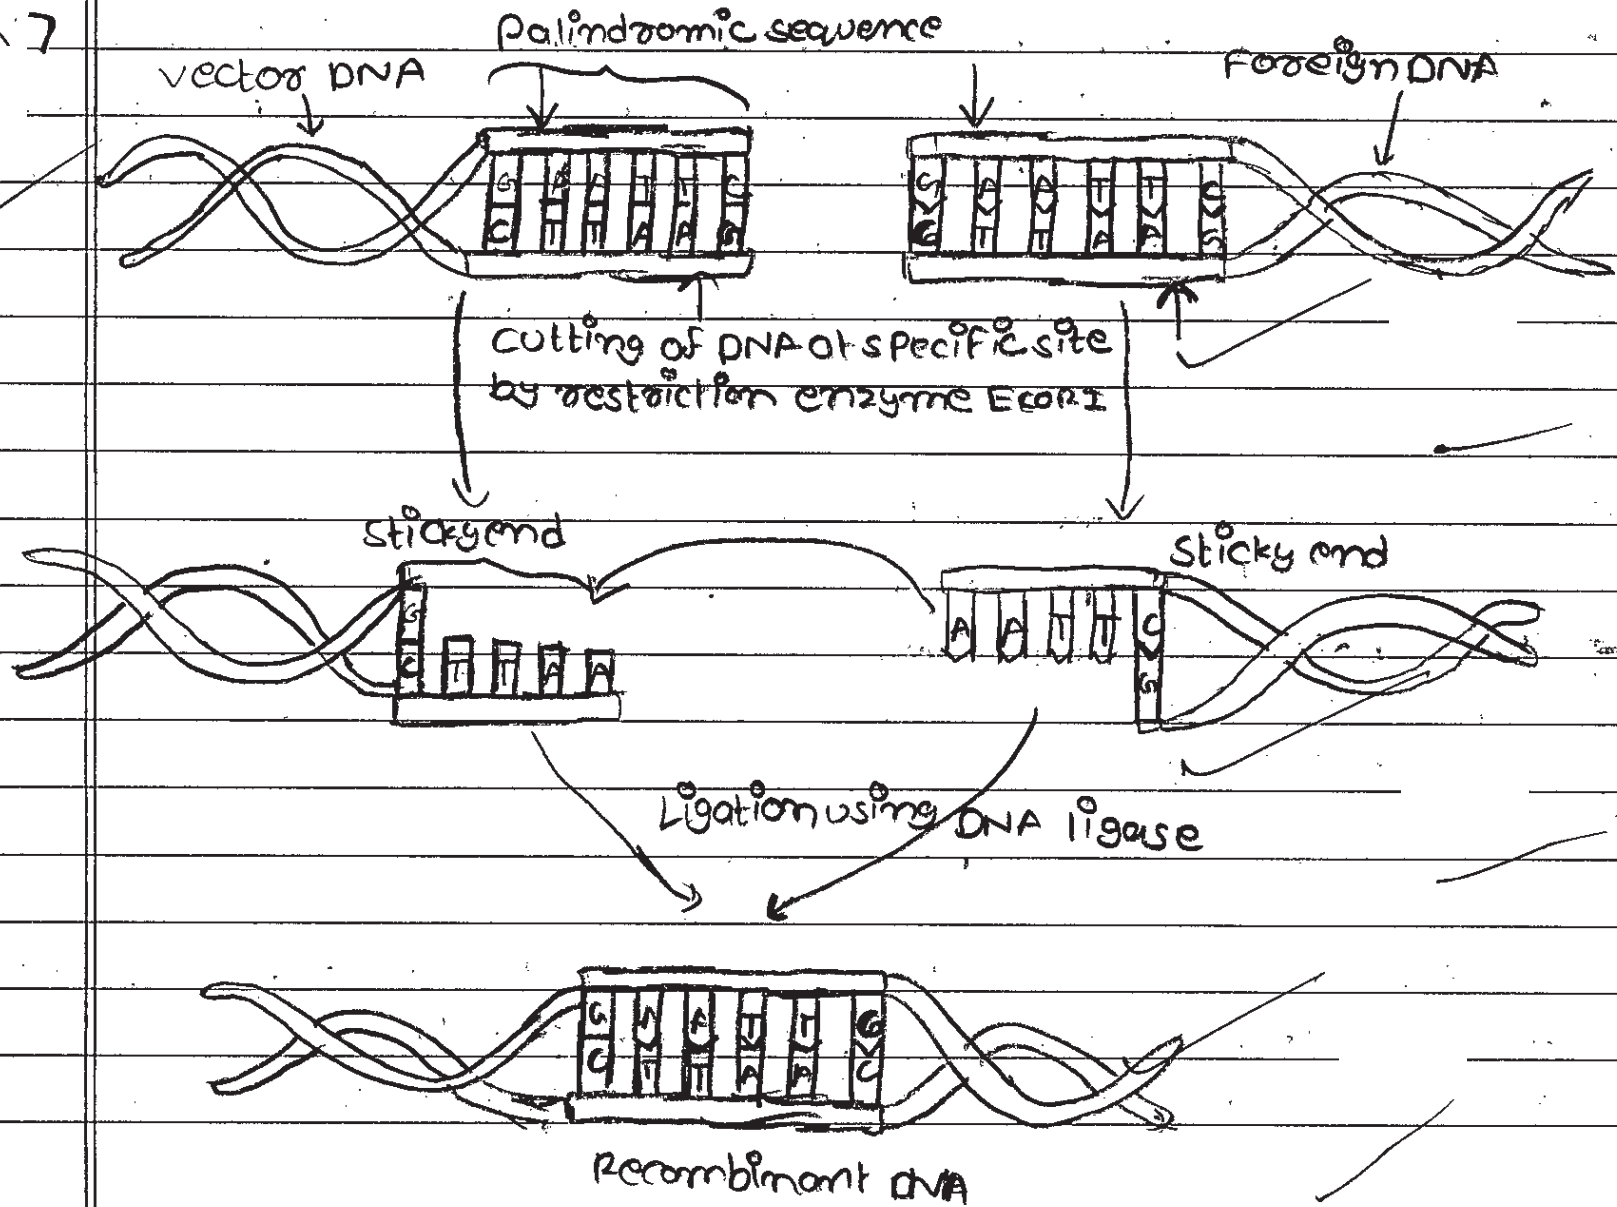 7
Palindromic sequence
vector DNA
Foreign DNA
G A A T T C
C T T A A G
G A A T T C
C T T A A G
Cutting of DNA at specific site
by restriction enzyme EcoRI
Sticky end
Sticky end
G
C T T A A
A A T T C
G
Ligation using DNA ligase
G A A T T G
C T T A A C
Recombinant DNA